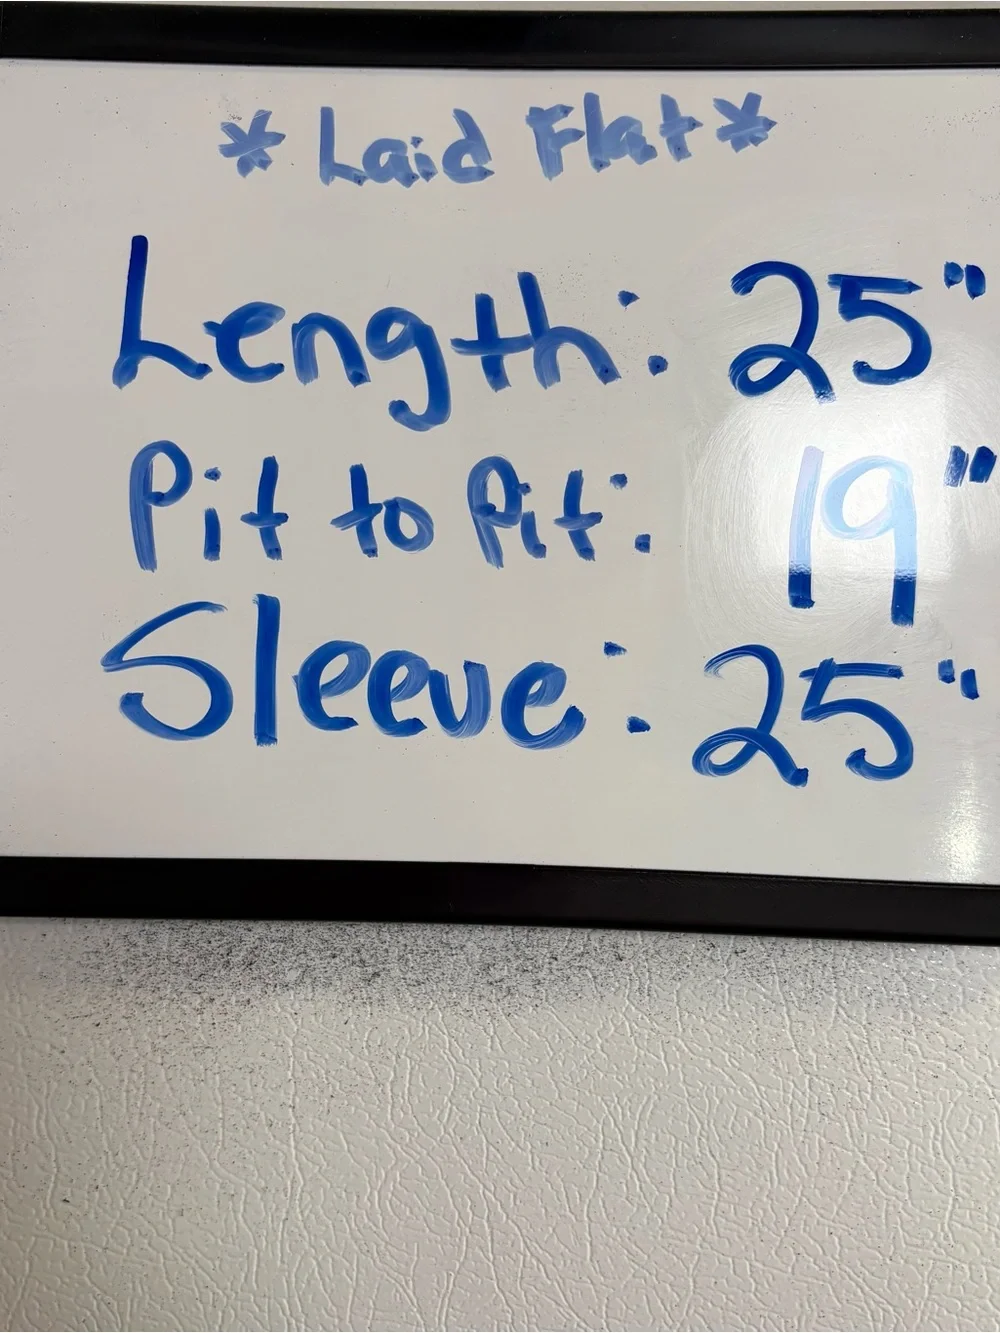 * Laid Flat *
Length: 25"
Pit to Pit: 19"
Sleeve: 25"